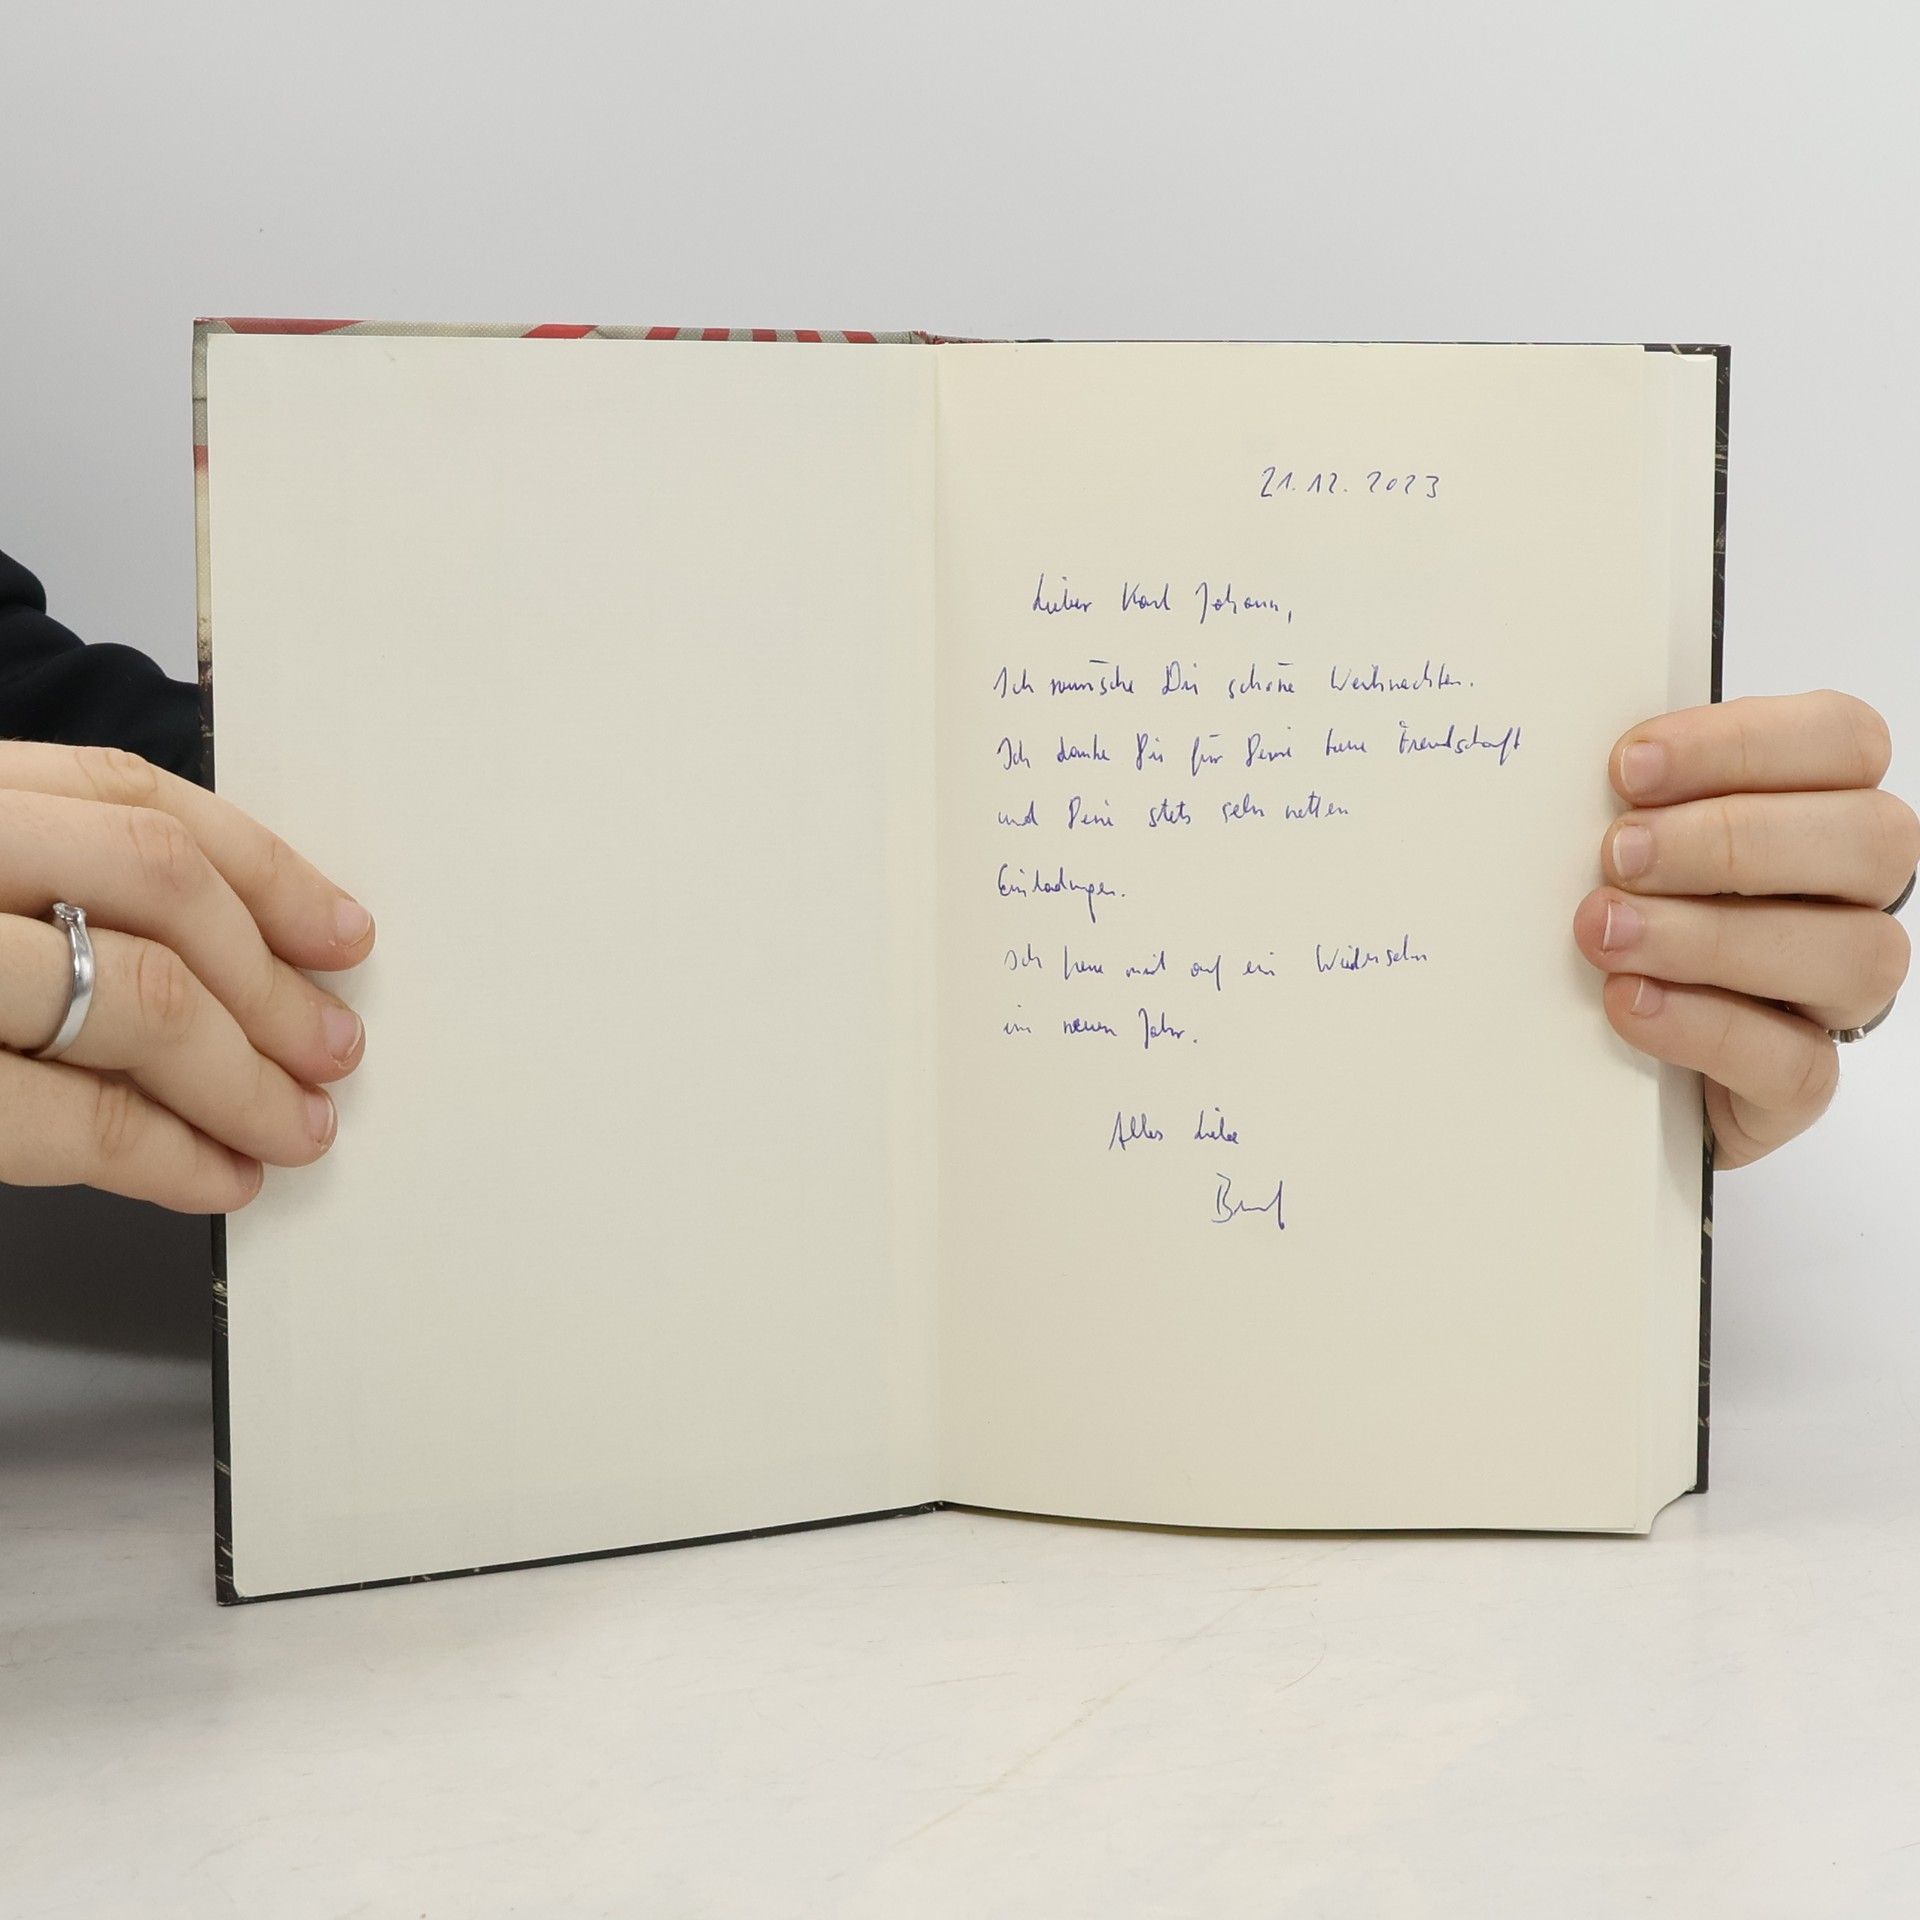 21.12.2023
Lieber Karl Johann,
Ich wünsche Dir schöne Weihnachten.
Ich danke Dir für Deine treue Freundschaft
und Deine stets sehr netten
Einladungen.
Ich freue mich auf ein Wiedersehn
im neuen Jahr.
Alles Liebe